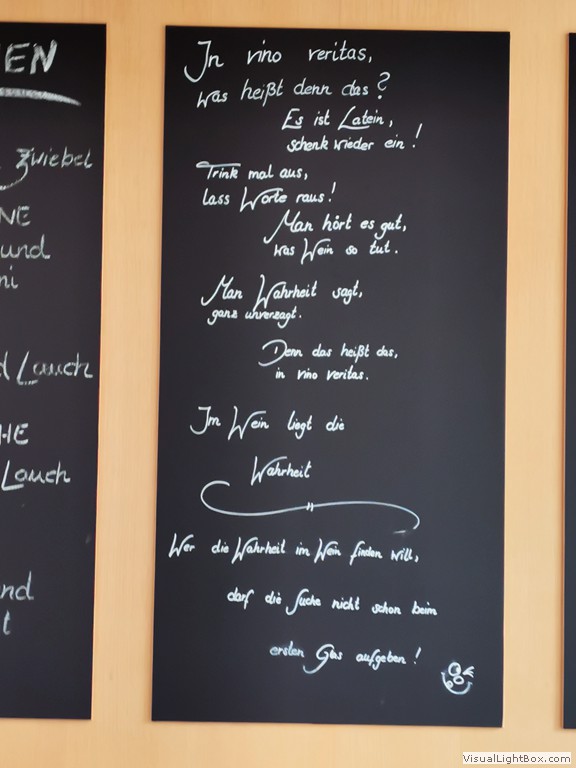 EN
Zwiebel
NE
und
ni
d Lauch
HE
Lauch
nd
t
In vino veritas,
was heißt denn das?
Es ist Latein,
schenk wieder ein!
Trink mal aus,
lass Worte raus!
Man hört es gut,
was Wein so tut.
Man Wahrheit sagt,
ganz unverzagt.
Denn das heißt das,
in vino veritas.
Im Wein liegt die
Wahrheit
Wer die Wahrheit im Wein finden will,
darf die Suche nicht schon beim
ersten Glas aufgeben!
VisualLightBox.com